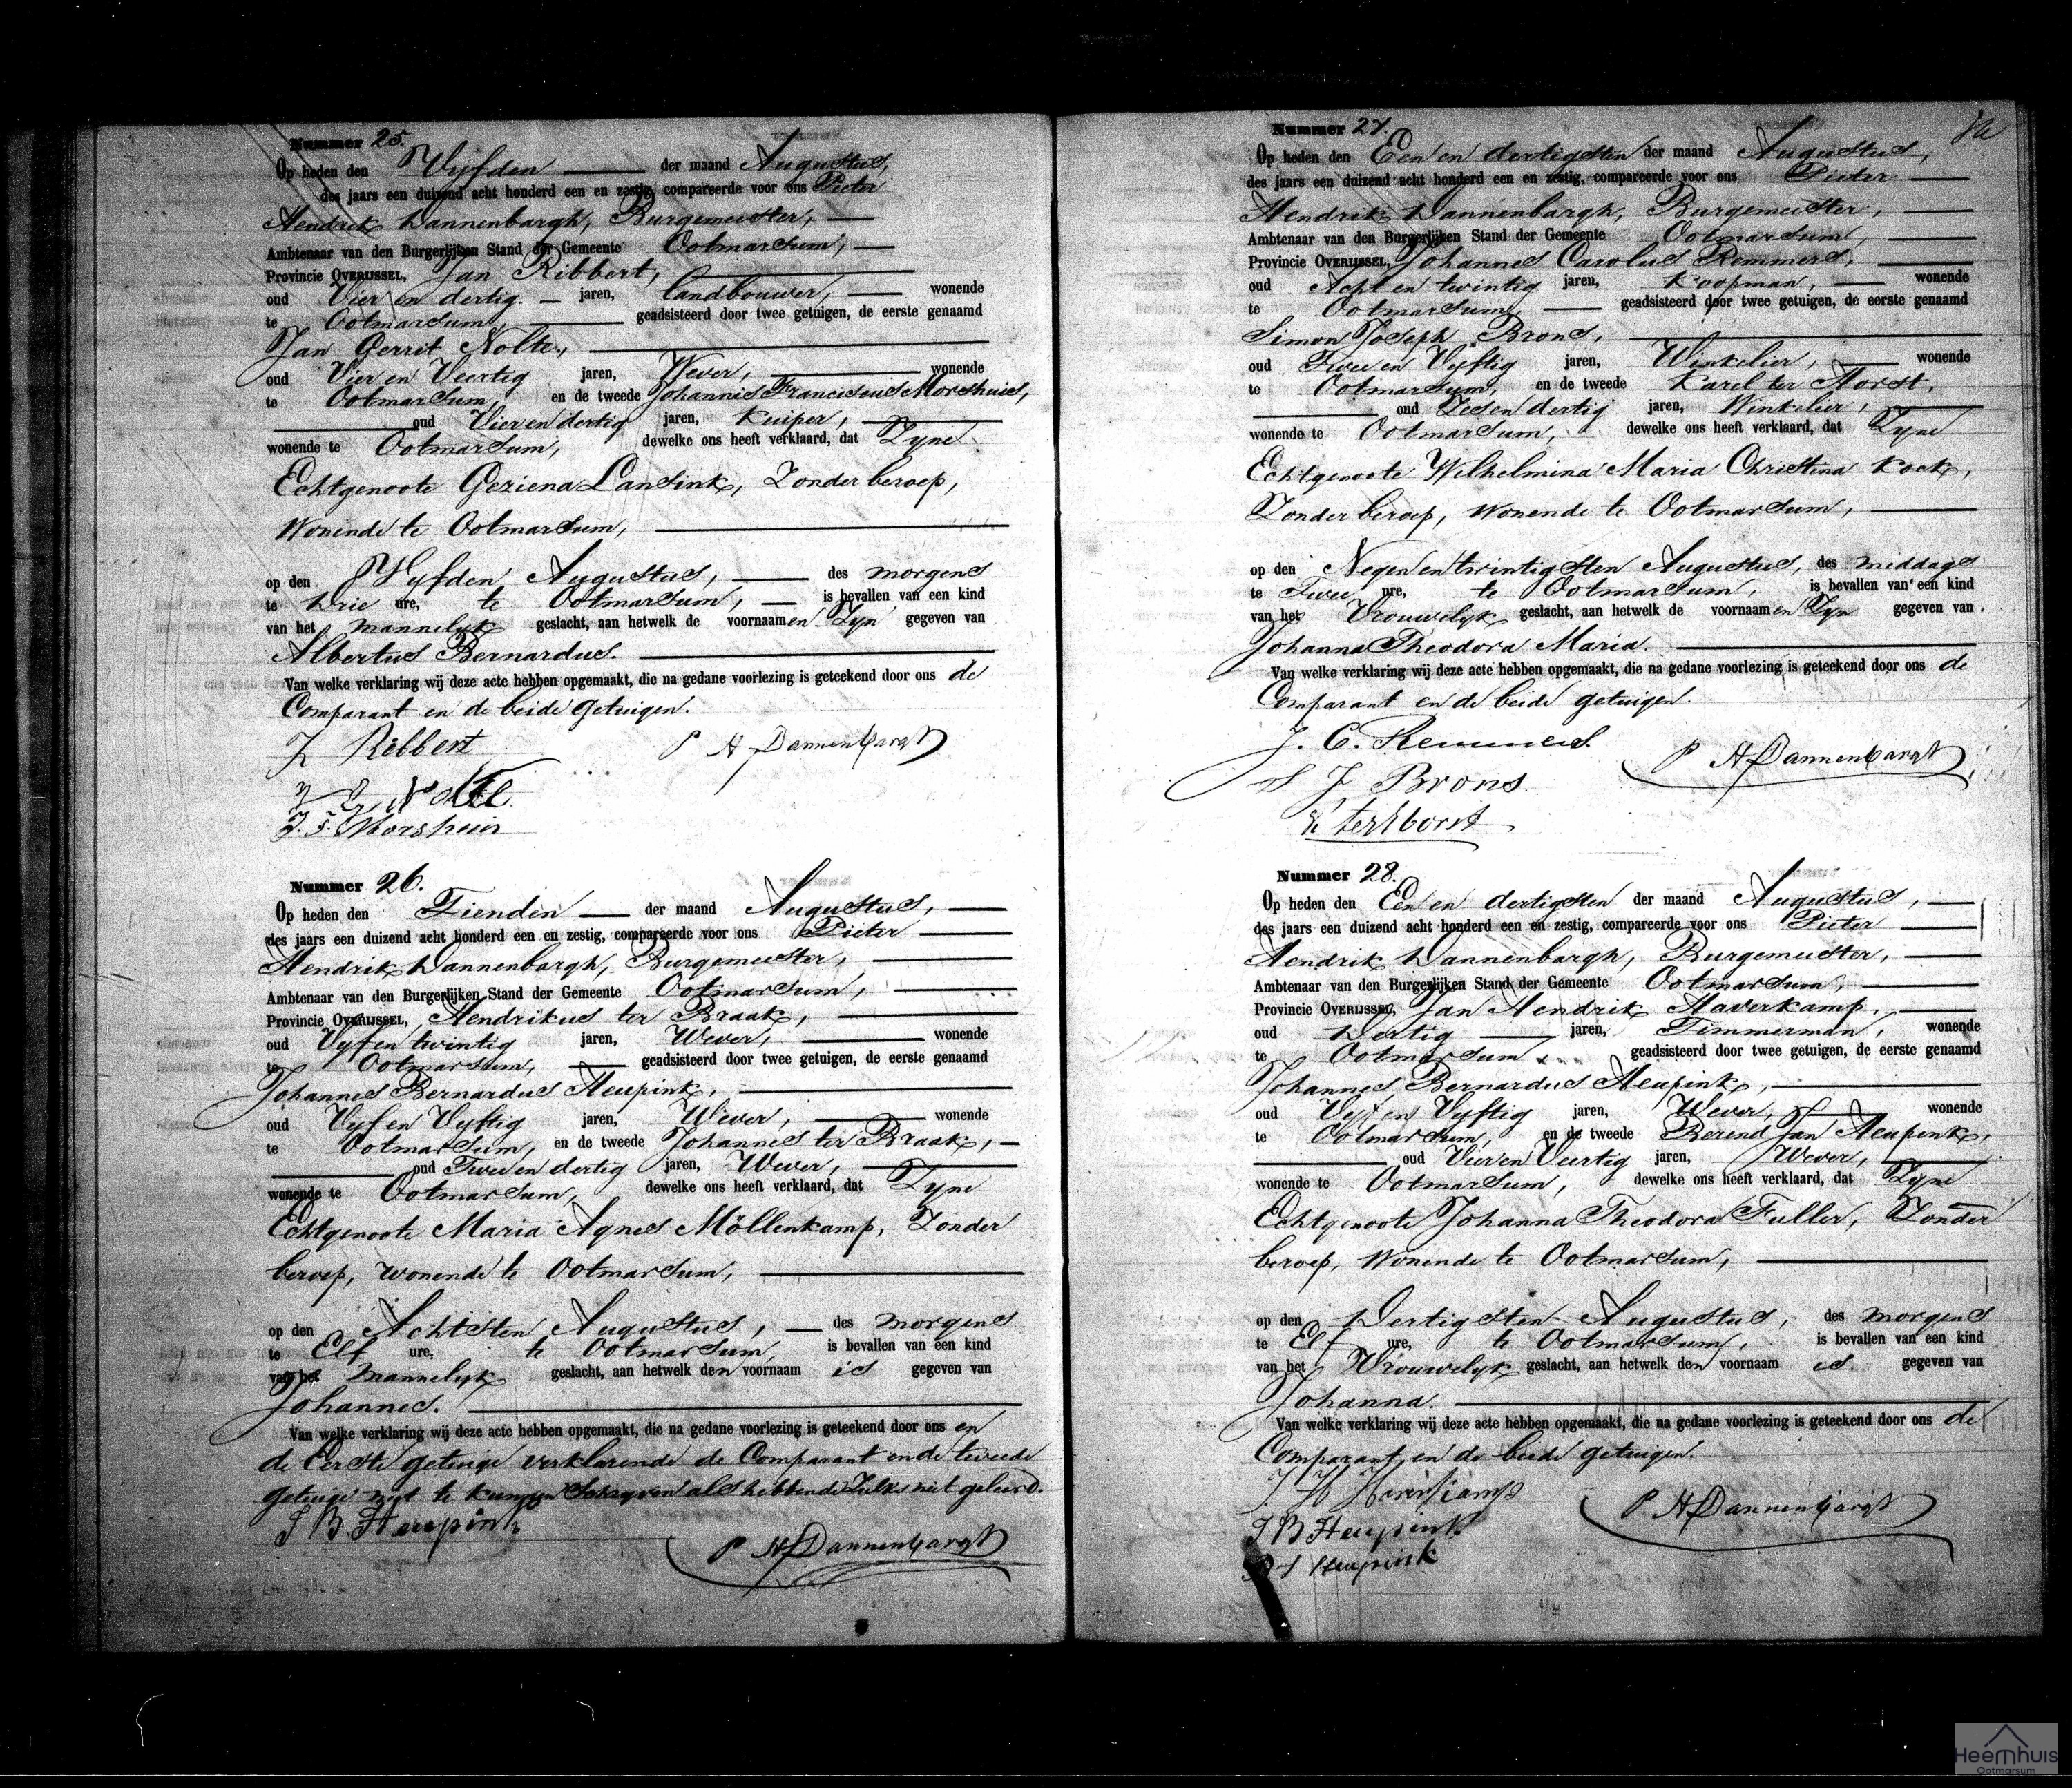 Nummer 25.
Op heden den Vyfden der maand Augustus,
des jaars een duizend acht honderd een en zestig, compareerde voor ons Pieter
Hendrik Dannenbargh, Burgemeester,
Ambtenaar van den Burgerlijken Stand der Gemeente Ootmarsum,
Provincie OVERIJSSEL, Jan Ribbert,
oud Vier en dertig jaren, Landbouwer, wonende
te Ootmarsum, geadsisteerd door twee getuigen, de eerste genaamd
Jan Gerrit Nolte,
oud Vier en Veertig jaren, Wever, wonende
te Ootmarsum, en de tweede Johannis Franciscus Morshuis,
oud Vier en dertig jaren, Kuiper,
wonende te Ootmarsum, dewelke ons heeft verklaard, dat Zyne
Echtgenoote Geziena Lansink, Zonder beroep,
Wonende te Ootmarsum,
op den Vyfden Augustus, des morgens
te Drie ure, te Ootmarsum, is bevallen van een kind
van het mannelyk geslacht, aan hetwelk de voornaamen Zyn gegeven van
Albertus Bernardus.
Van welke verklaring wij deze acte hebben opgemaakt, die na gedane voorlezing is geteekend door ons de
Comparant en de beide getuigen.
J Ribbert P H Dannenbargh
J G Nolte
J. F. Morshuis
Nummer 26.
Op heden den Tienden der maand Augustus,
des jaars een duizend acht honderd een en zestig, compareerde voor ons Pieter
Hendrik Dannenbargh, Burgemeester,
Ambtenaar van den Burgerlijken Stand der Gemeente Ootmarsum,
Provincie OVERIJSSEL, Hendrikus ter Braak,
oud Vyf en twintig jaren, Wever, wonende
te Ootmarsum, geadsisteerd door twee getuigen, de eerste genaamd
Johannes Bernardus Heupink,
oud Vyf en Vyftig jaren, Wever, wonende
te Ootmarsum, en de tweede Johannes ter Braak,
oud Twee en dertig jaren, Wever,
wonende te Ootmarsum, dewelke ons heeft verklaard, dat Zyne
Echtgenoote Maria Agnes Möllenkamp, Zonder
beroep, wonende te Ootmarsum,
op den Achtsten Augustus, des morgens
te Elf ure, te Ootmarsum is bevallen van een kind
van het mannelyk geslacht, aan hetwelk den voornaam is gegeven van
Johannes.
Van welke verklaring wij deze acte hebben opgemaakt, die na gedane voorlezing is geteekend door ons en
de Eerste getuige verklarende de Comparant en de tweede
getuige niet te kunnen Schryven als hebbende Zulks niet geleerd.
J B. Heupink
P H Dannenbargh
Nummer 27.
Op heden den Een en dertigsten der maand Augustus,
des jaars een duizend acht honderd een en zestig, compareerde voor ons Pieter
Hendrik Dannenbargh, Burgemeester,
Ambtenaar van den Burgerlijken Stand der Gemeente Ootmarsum,
Provincie OVERIJSSEL, Johannes Carolus Remmers,
oud Acht en twintig jaren, Koopman, wonende
te Ootmarsum, geadsisteerd door twee getuigen, de eerste genaamd
Simon Joseph Brons,
oud Twee en Vyftig jaren, Winkelier, wonende
te Ootmarsum, en de tweede Karel ter Horst,
oud Zes en dertig jaren, Winkelier,
wonende te Ootmarsum, dewelke ons heeft verklaard, dat Zyne
Echtgenoote Wilhelmina Maria Christina Kock,
Zonder beroep, Wonende te Ootmarsum,
op den Negen en twintigsten Augustus, des middags
te Twee ure, te Ootmarsum, is bevallen van een kind
van het Vrouwelyk geslacht, aan hetwelk de voornaamen Zyn gegeven van
Johanna Theodora Maria.
Van welke verklaring wij deze acte hebben opgemaakt, die na gedane voorlezing is geteekend door ons de
Comparant en de beide getuigen.
J. C. Remmers. P H Dannenbargh
S J Brons
K ter Horst
Nummer 28.
Op heden den Een en dertigsten der maand Augustus,
des jaars een duizend acht honderd een en zestig, compareerde voor ons Pieter
Hendrik Dannenbargh, Burgemeester,
Ambtenaar van den Burgerlijken Stand der Gemeente Ootmarsum,
Provincie OVERIJSSEL, Jan Hendrik Haverkamp,
oud Dertig jaren, Timmerman, wonende
te Ootmarsum geadsisteerd door twee getuigen, de eerste genaamd
Johannes Bernardus Heupink,
oud Vyf en Vyftig jaren, Wever, wonende
te Ootmarsum, en de tweede Berend Jan Heupink,
oud Vier en Veertig jaren, Wever,
wonende te Ootmarsum, dewelke ons heeft verklaard, dat Zyne
Echtgenoote Johanna Theodora Fuller, Zonder
beroep, Wonende te Ootmarsum,
op den Dertigsten Augustus, des morgens
te Elf ure, te Ootmarsum, is bevallen van een kind
van het Vrouwelyk geslacht, aan hetwelk den voornaam is gegeven van
Johanna.
Van welke verklaring wij deze acte hebben opgemaakt, die na gedane voorlezing is geteekend door ons de
Comparant en de beide getuigen.
J H Haverkamp P H Dannenbargh
J B Heupink
B J Heupink
Heemhuis
Ootmarsum